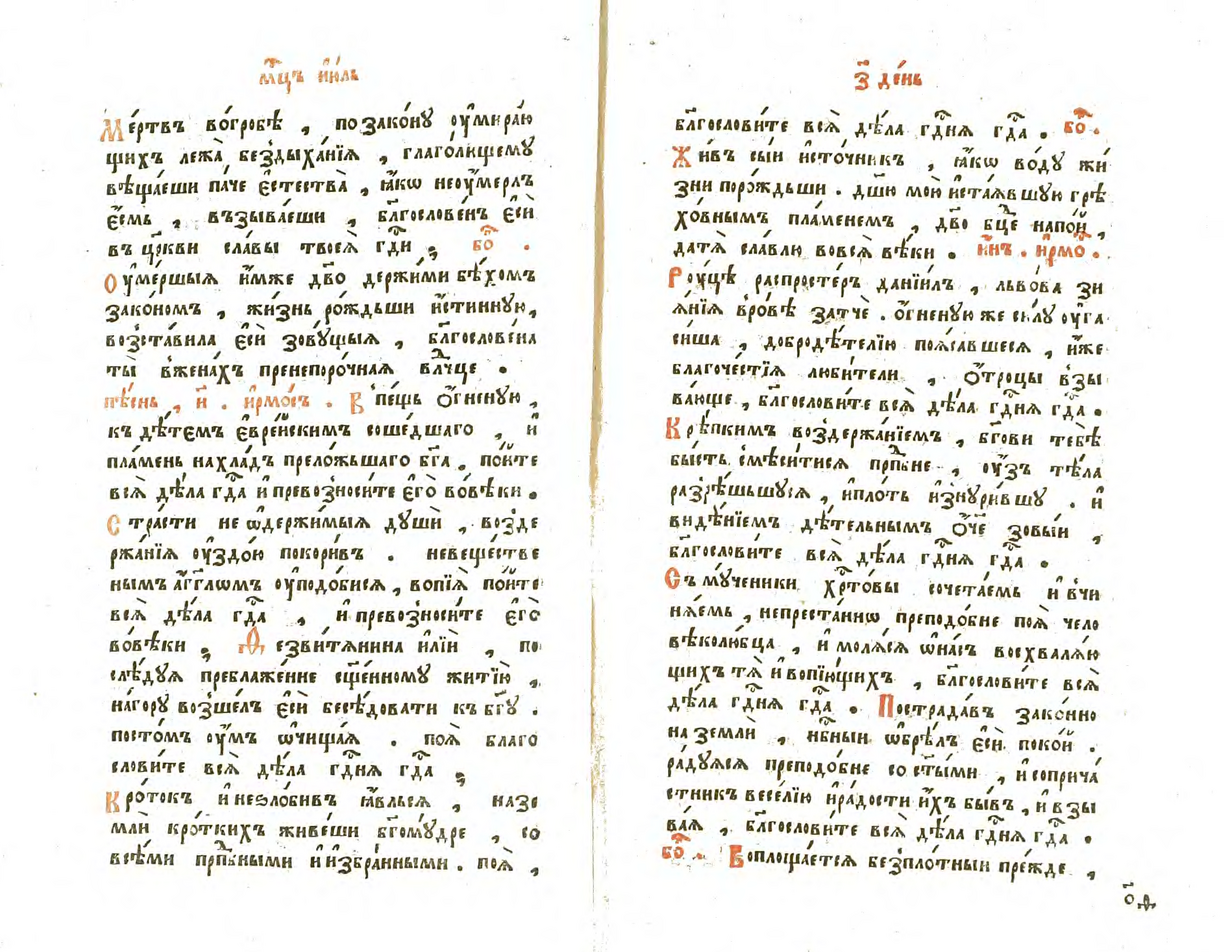 мⷭ҇цъ і҆ю́ль
Ме́ртвъ во́гробѣ , по зако́нꙋ ᲂу҆мира́ю
щихъ лежа̀ бездыха́нїѧ , глаго́лищемꙋ
вѣща́еши па́че є҆стества̀ , ꙗ҆́кѡ неᲂу҆́мерлъ
є҆́смь , възыва́еши , бл҃гослове́нъ є҆сѝ
въ цр҃кви сла́вы твоеѧ̀ гдⷭ҇и , бо҇ .
Оу҆ме́ршыѧ и҆́мже дв҃о держи́ми бѣ́хомъ
зако́номъ , жи́знь ро́ждьши и҆́стиннꙋю,
возста́вила є҆сѝ зовꙋ́щыѧ , бл҃гослове́на
ты̀ вже́нахъ пренепоро́чнаѧ влⷣчце .
пѣ́снь , и҃ . і҆рмо́съ . В пе́щь ѻ҆́гненꙋю ,
къ дѣ́темъ є҆вре́йскимъ соше́дшаго , и҆
пла́мень на хла́дъ прело́жьшаго бг҃а , по́йте
всѧ̀ дѣ́ла гдⷭ҇а и҆ превозноси́те є҆го̀ во́вѣки .
Стра́сти не ѡ҆держи́мыѧ дꙋшѝ , возде
ржа́нїѧ ᲂу҆здо́ю покори́въ . невеще́стве
нымъ а҆́гг҃лѡмъ ᲂу҆подо́бисѧ , вопїѧ̀ по́йте
всѧ̀ дѣ́ла гдⷭ҇а , и҆ превозноси́те є҆го̀
во́вѣки , Ѳезвитѧ́нина и҆лїѝ , по
слѣ́дꙋѧ преблаже́нне сщ҃е́нномꙋ житїю̀ ,
на́горꙋ возше́лъ є҆сѝ бесѣ́довати къ бг҃ꙋ .
посто́мъ ᲂу҆́мъ ѡ҆чища́ѧ . поѧ̀ благо
слови́те всѧ̀ дѣ́ла гдⷭ҇нѧ гдⷭ҇а ,
Кро́токъ и҆ незло́бивъ ꙗ҆вльсѧ , на зе
млѝ кро́ткихъ живе́ши бг҃омꙋ́дре , со
все́ми прпⷣбными и҆ и҆збра́нными . поѧ̀ ,
з҃ де́нь
бл҃гослови́те всѧ̀ дѣ́ла гдⷭ҇нѧ гдⷭ҇а . бо҇ .
Жи́въ сы́и и҆сто́чникъ , ꙗ҆́кѡ во́дꙋ жи́
зни поро́ждьши . дш҃ꙋ мою̀ и҆ста́ѧвшꙋю грѣ
хо́внымъ пла́менемъ , дв҃о бцⷣе напо́й ,
да тѧ̀ сла́влю вовсѧ̀ вѣ́ки . и҆́нъ . і҆рмо҇ .
Рꙋ́цѣ распросте́ръ данїи́лъ , льво́ва зи
ѧ́нїѧ в ро́вѣ затчѐ . ѻ҆́гненꙋю же си́лꙋ ᲂу҆га
си́ша , добродѣ́телїю поѧ́савшесѧ , и҆́же
благоче́стїѧ люби́тели , ѻ҆́троцы взы
ва́юще , бл҃гослови́те всѧ̀ дѣ́ла гдⷭ҇нѧ гдⷭ҇а .
Крѣ́пкимъ воздержа́нїемъ , бг҃ови тебѣ̀
бы́сть смѣси́тисѧ прпⷣбне , ᲂу҆́зъ тѣ́ла
разрѣ́шьшꙋсѧ , и҆пло́ть и҆знꙋри́вшꙋ . и҆
видѣ́нїемъ дѣ́тельнымъ ѻ҆́ч҃е зовы́и ,
бл҃гослови́те всѧ̀ дѣ́ла гдⷭ҇нѧ гдⷭ҇а .
Съ мꙋ́ченики хрⷭ҇то́вы сочета́емь и҆ вчи
нѧ́емь , непреста́ннѡ преподо́бне поѧ̀ чело
вѣколю́бца , и҆ молѧ́сѧ ѡ҆на́съ восхвалѧ́ю
щихъ тѧ̀ и҆ вопїю́щихъ , бл҃гослови́те всѧ̀
дѣ́ла гдⷭ҇нѧ гдⷭ҇а . Пострада́въ зако́нно
на землѝ , нб҃ныи ѡ҆брѣ́лъ є҆сѝ поко́й .
ра́дꙋѧсѧ преподо́бне со ст҃ы́ми , и҆ соприча́
стникъ весе́лїю и҆ ра́дости и҆́хъ бы́въ , и҆ взы
ва́ѧ , бл҃гослови́те всѧ̀ дѣ́ла гдⷭ҇нѧ гдⷭ҇а .
бо҇ . Воплоща́етсѧ безпло́тныи пре́жде ,
о҃д